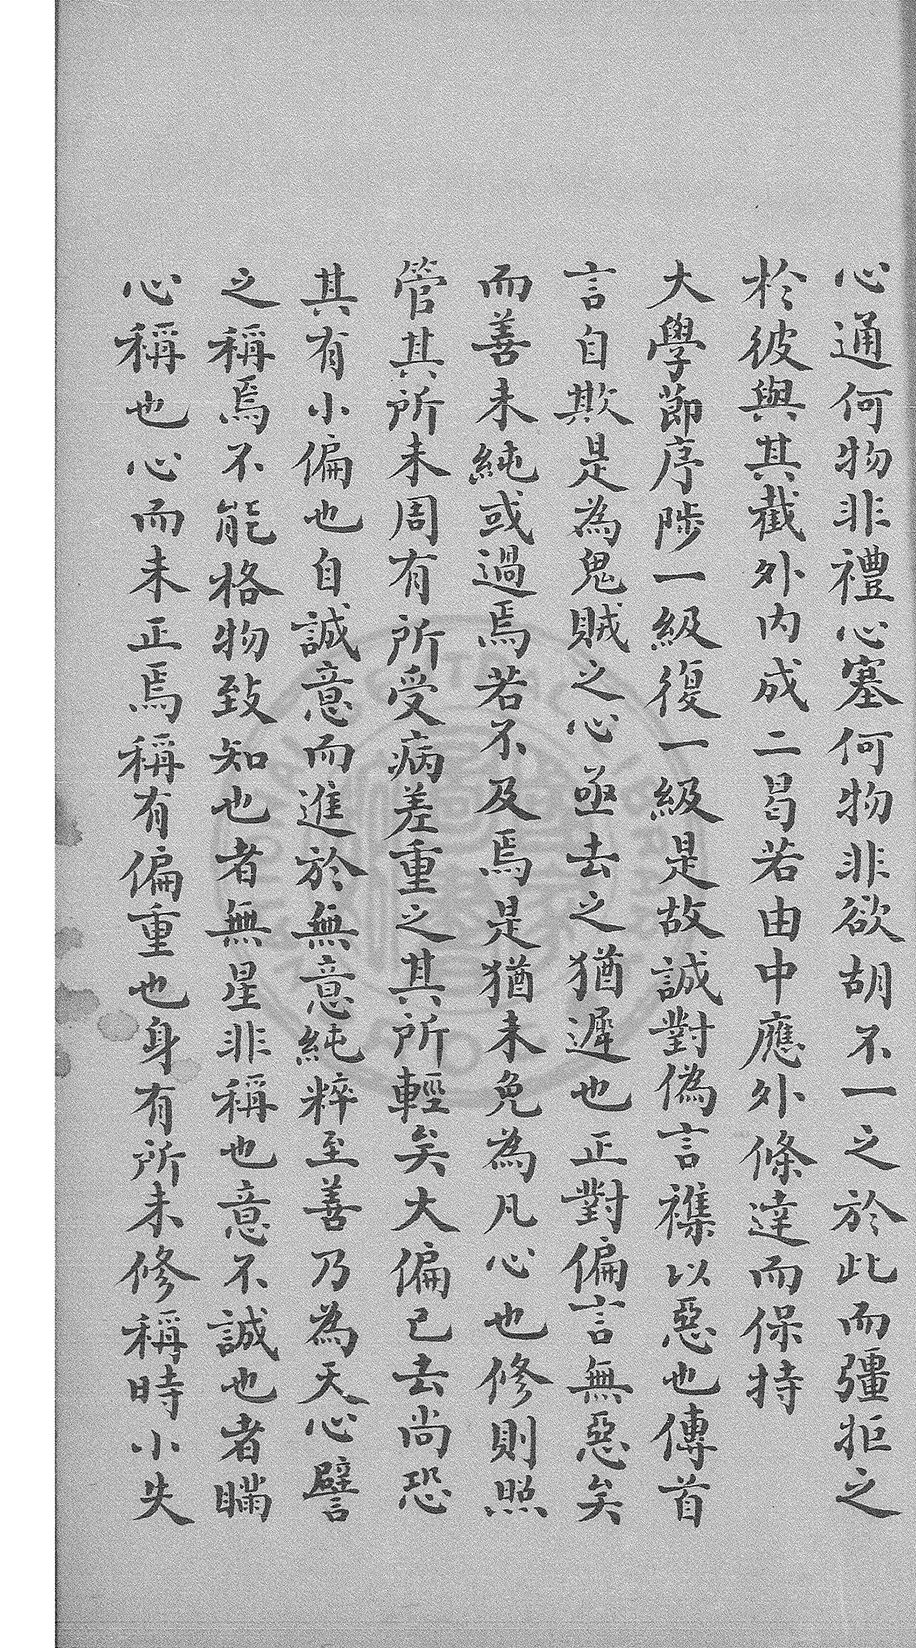 心通何物非禮心塞何物非欲胡不一之於此而彊拒之
於彼與其截外內成二曷若由中應外條達而保持
大學節序陟一級復一級是故誠對偽言襍以惡也傳首
言自欺是為鬼賊之心亟去之猶遲也正對偏言無惡矣
而善未純或過焉若不及焉是猶未免為凡心也修則照
管其所未周有所受病差重之其所輕矣大偏已去尚恐
其有小偏也自誠意而進於無意純粹至善乃為天心譬
之稱焉不能格物致知也者無星非稱也意不誠也者瞞
心稱也心而未正焉稱有偏重也身有所未修稱時小失